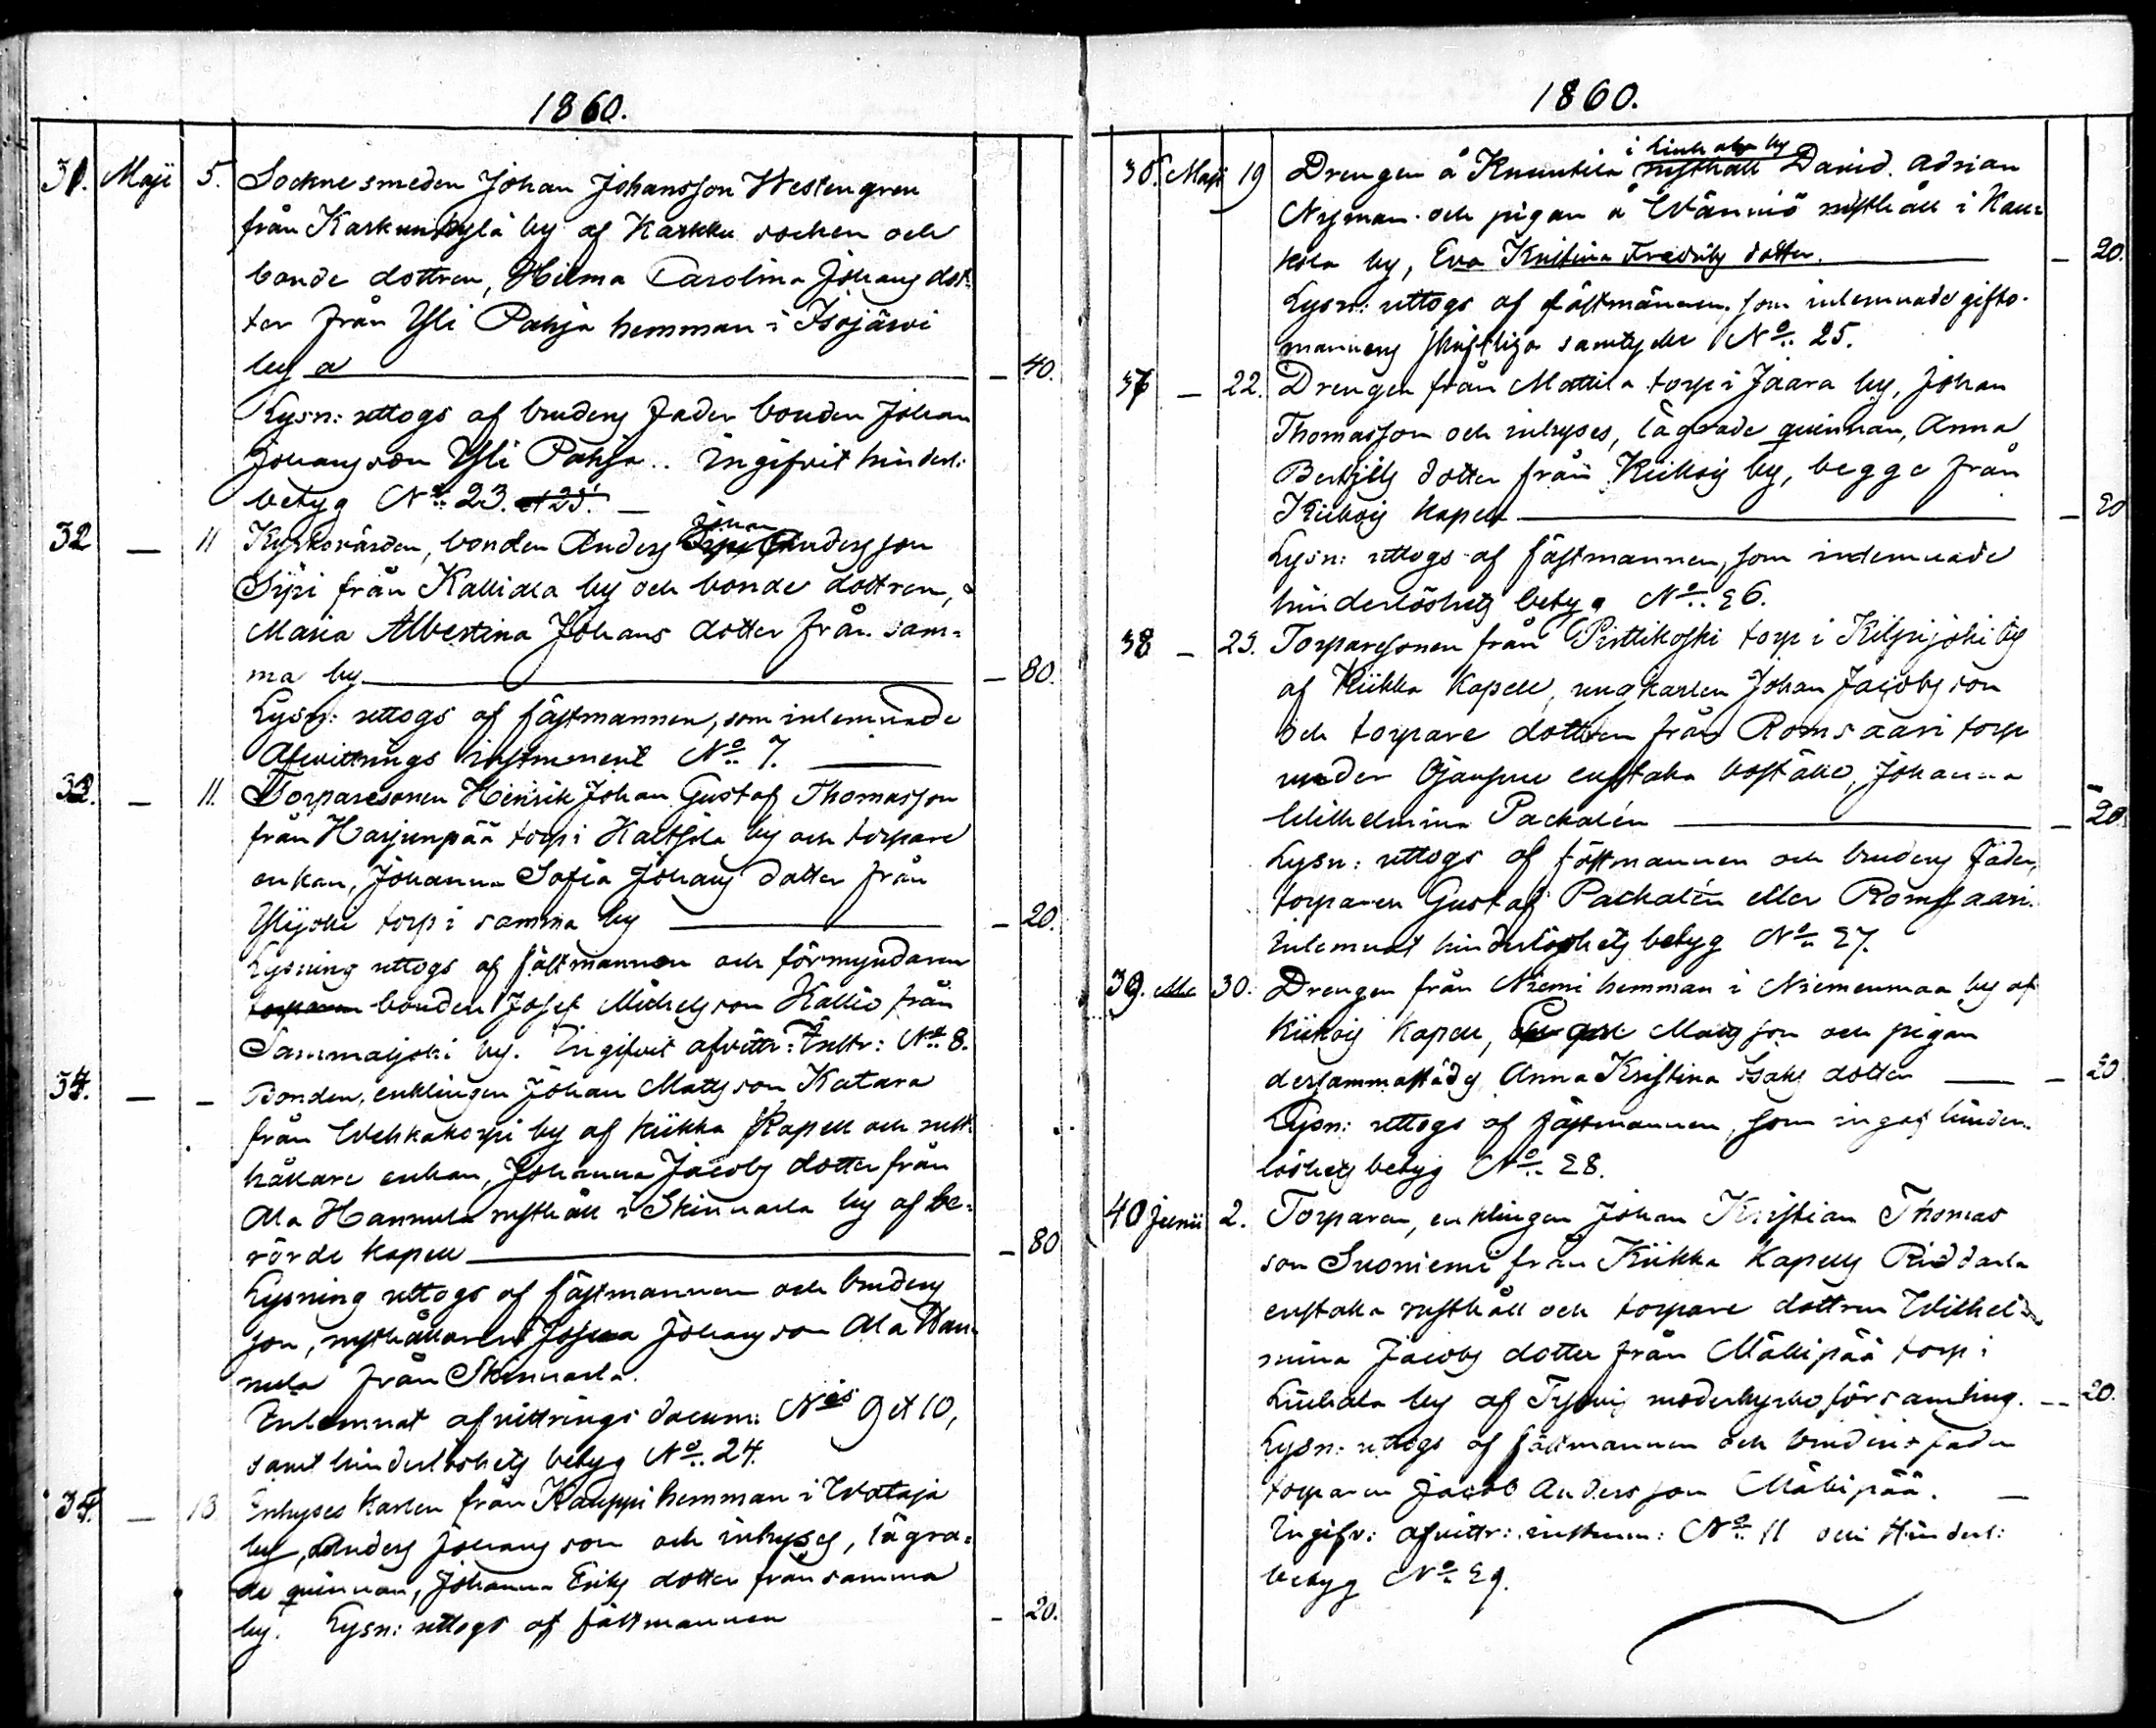 1860.
31. Maji 5. Socknesmeden Johan Johansson Westengren
från Karkunkylä by af Karkku socken och
bonde dottren, Hilma Carolina Johans dot-
ter från Yli Pahja hemman i Isojärvi
by a — 40.
Lysn: uttogs af brudens fader bonden Johan
Johansson Yli Pahja.. Ingifvit hinderl:
betyg No. 23.
32 — 11 Kyrkovärden, bonden Anders Johan Andersson
Sipi från Kalliala by och bonde dottren,
Maria Albertina Johans dotter från sam-
ma by — 80.
Lysn: uttogs af fästmannen, som inlemnade
Afwittrings instrument No. 7.
33. — 11. Torparesonen Henrik Johan Gustaf Thomasson
från Harjunpää torp i Kaltsila by och torpare
enkan, Johanna Sofia Johans dotter från
Ylijoki torp i samma by — 20.
Lysning uttogs af fästmannen och förmyndaren
torparen bonden Josef Michelsson Kallio från
Sammaljoki by. Ingifvit afvittr: Instr: No. 8.
34. — — Bonden, enklingen Johan Matsson Katara
från Wehkakorpi by af Kiikka Kapell och rust-
hållare enkan, Johanna Jacobs dotter från
Ala Hannula rusthåll i Skinnarla by af be-
rörde kapell — 80
Lysning uttogs af fästmannen och brudens
son, rusthållaren Josua Johansson Ala Han-
nula från Skinnarla.
Inlemnat afvittrings docum: Nis 9 et 10,
samt hinderlöshets betyg No. 24.
35. — 13 Inhyses karlen från Kauppi hemman i Wataja
by, Anders Johansson och inhyses, lägra-
de quinnan, Johanna Eriks dotter från samma
by. Lysn: uttogs af fästmannen — 20.
1860.
i Liuhala by
36. Maji 19 Drengen å Knuutila rusthåll David Adrian
Nyman och pigan å Wänniö rusthåll i Kau-
kola by, Eva Kristina Fredriks dotter. — 20.
Lysn: uttogs af fästmannen, som inlemnade gifto-
mannens skriftliga samtycke No. 25.
37 — 22. Drengen från Mattila torp i Jaara by, Johan
Thomasson och inhyses, lägrade quinnan, Anna
Bertills dotter från Kiikois by, begge från
Kiikois kapell — 20
Lysn: uttogs af fästmannen, som inlemnade
hinderlöshets betyg No. 26.
38 — 23. Torparesonen från Pirttikoski torp i Kilpijoki by
af Kiikka Kapell, ungkarlen Johan Jacobsson
och torpare dottren från Romsaari torp
under Gjaupu enstaka boställe, Johanna
Wilhelmina Packalén — 20.
Lysn: uttogs af fästmannen och brudens fader,
torparen Gustaf Packalén eller Romsaari.
Inlemnat hinderlöshets betyg No. 27.
39. 30. Drengen från Niemi hemman i Niemenmaa by af
Kiikois Kapell, Matsson och pigan
dersammastädes Anna Kristina Isaks dotter — 20
Lysn: uttogs af fästmannen, som ingaf hinder-
löshets betyg No. 28.
40 Junii 2. Torparen, enklingen Johan Kristian Thomas
son Suoniemi från Kiikka Kapells Riddarla
enstaka rusthåll och torpare dottren Wilhel-
mina Jacobs dotter från Mäkipää torp i
Liuhala by af Tyrvis moderkyrko församling. — 20.
Lysn: uttogs af fästmannen och brudens fader
torparen Jacob Andersson Mäkipää. —
Ingifv: afvittr: instrum: No. 11 och Hinderl:
betyg No. 29.